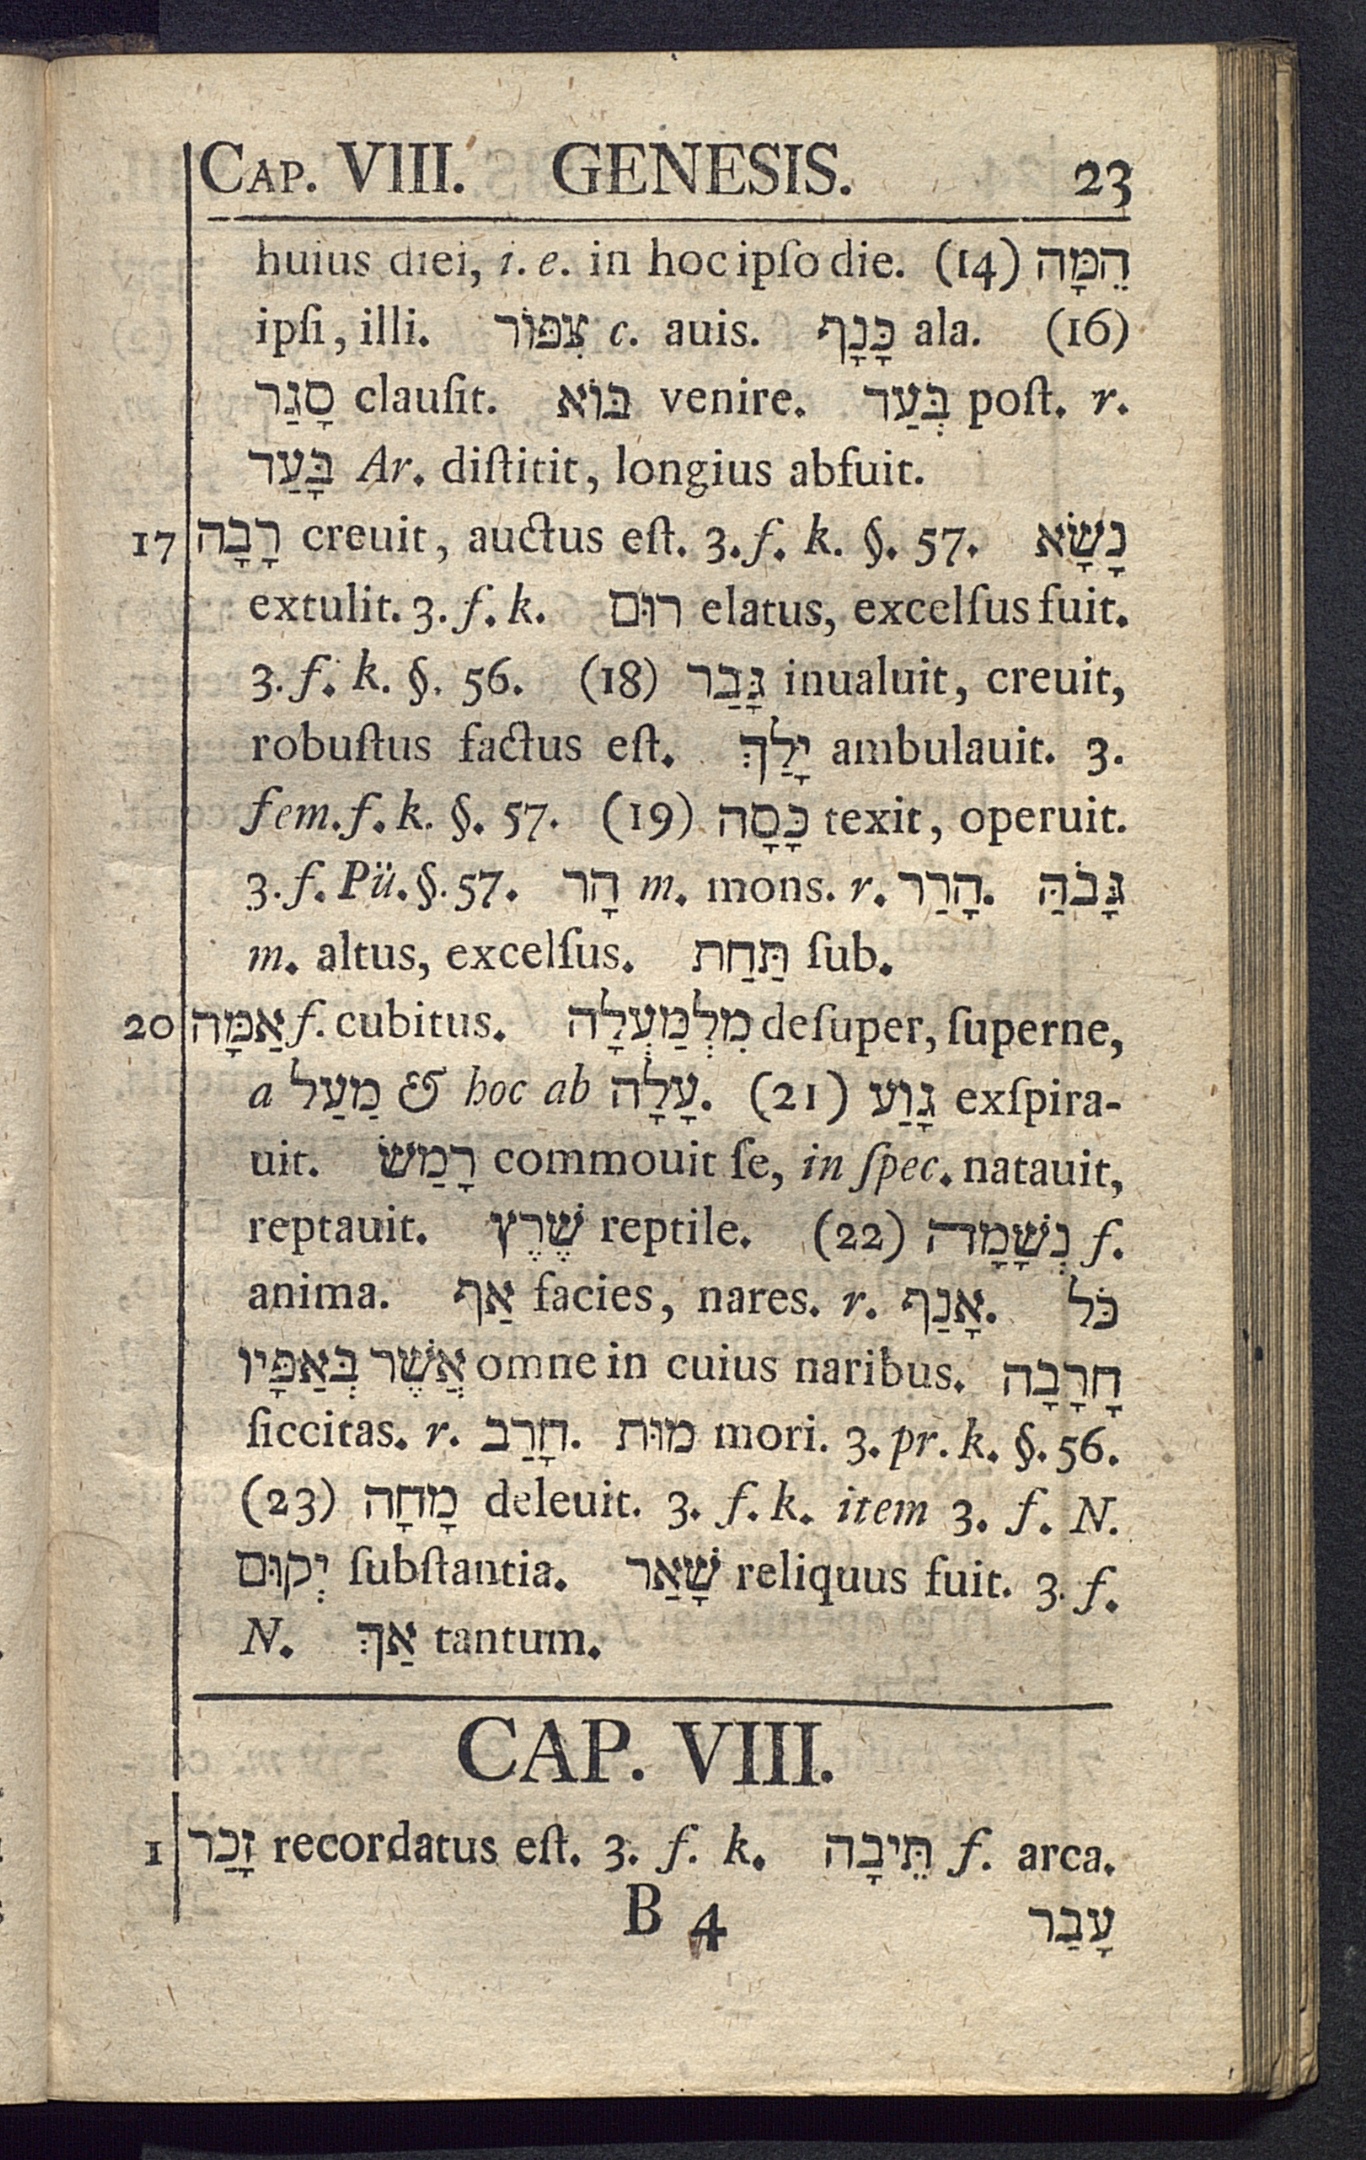 CAP. VIII. GENESIS. 23
huius diei, i. e. in hoc ipſo die. (14) הֵמָּה
ipſi, illi. צִפּוֹר c. auis. כָּנָף ala. (16)
סָגַר clauſit. בּוֹא venire. בְּעַד poſt. r.
בָּעַד Ar. diſtitit, longius abfuit.
17 רָבָה creuit, auctus eſt. 3. f. k. §. 57. נָשָׂא
extulit. 3. f. k. רוּם elatus, excelſus fuit.
3. f. k. §. 56. (18) גָּבַר inualuit, creuit,
robuſtus factus eſt. יָלַךְ ambulauit. 3.
fem. f. k. §. 57. (19) כָּסָה texit, operuit.
3. f. Pü. §. 57. הָר m. mons. r. הָרַר. גָּבֹהַּ
m. altus, excelſus. תַּחַת ſub.
20 אַמָּה f. cubitus. מִלְמַעְלָה deſuper, ſuperne,
a מַעַל & hoc ab עָלָה. (21) גָּוַע exſpira-
uit. רָמַשׂ commouit ſe, in ſpec. natauit,
reptauit. שֶׁרֶץ reptile. (22) נְשָׁמָה f.
anima. אַף facies, nares. r. אָנַף. כֹּל
אֲשֶׁר בְּאַפָּיו omne in cuius naribus. חָרָבָה
ſiccitas. r. חָרַב. מוּת mori. 3. pr. k. §. 56.
(23) מָחָה deleuit. 3. f. k. item 3. f. N.
יְקוּם ſubſtantia. שָׁאַר reliquus fuit. 3. f.
N. אַךְ tantum.
CAP. VIII.
1 זָכַר recordatus eſt. 3. f. k. תֵּיבָה f. arca.
B 4 עָבַר